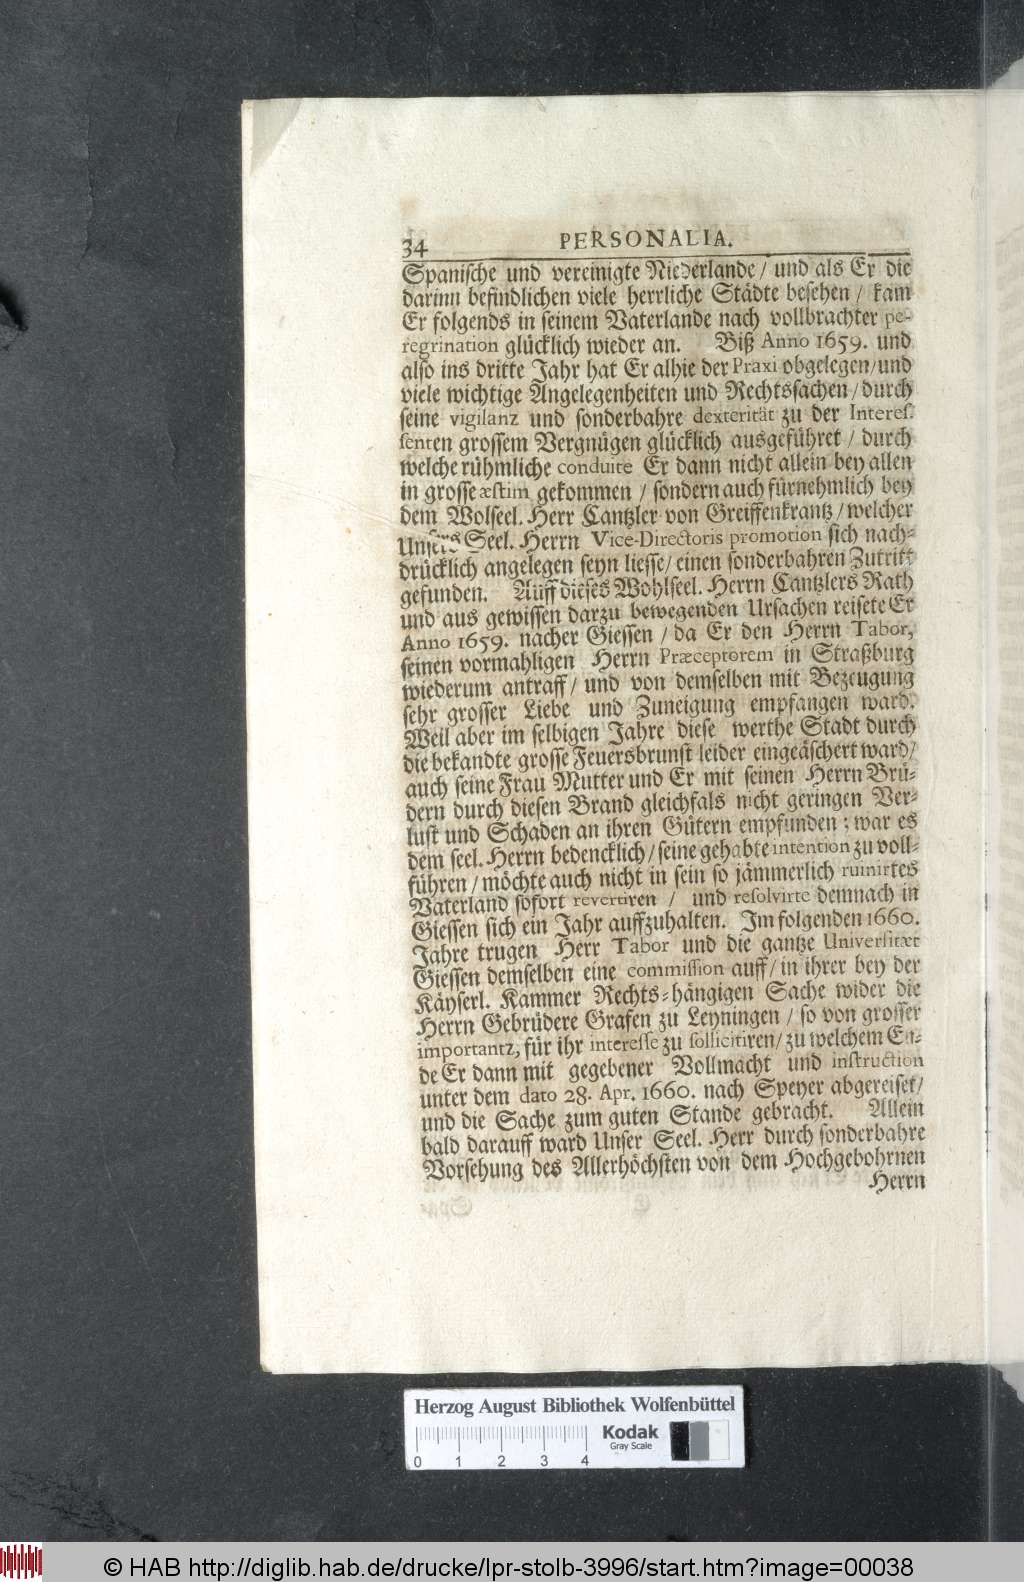 34 PERSONALIA.
Spanische und vereinigte Niederlande / und als Er die
darinn befindlichen viele herrliche Städte besehen / kam
Er folgends in seinem Vaterlande nach vollbrachter pe-
regrination glücklich wieder an. Biß Anno 1659. und
also ins dritte Jahr hat Er alhie der Praxi obgelegen/und
viele wichtige Angelegenheiten und Rechtssachen/durch
seine vigilanz und sonderbahre dexterität zu der Interes.
senten grossem Vergnügen glücklich ausgeführet / durch
welche rühmliche conduite Er dann nicht allein bey allen
in grosse æstim gekommen / sondern auch fürnehmlich bey
dem Wolseel. Herr Cantzler von Greiffenkrantz/welcher
Unsers Seel. Herrn Vice-Directoris promotion sich nach-
drücklich angelegen seyn liesse/einen sonderbahren Zutritt
gefunden. Auff dieses Wohlseel. Herrn Cantzlers Rath
und aus gewissen darzu bewegenden Ursachen reisete Er
Anno 1659. nacher Giessen / da Er den Herrn Tabor,
seinen vormahligen Herrn Præceptorem in Straßburg
wiederum antraff/ und von demselben mit Bezeugung
sehr grosser Liebe und Zuneigung empfangen ward.
Weil aber im selbigen Jahre diese werthe Stadt durch
die bekandte grosse Feuersbrunst leider eingeäschert ward/
auch seine Frau Mutter und Er mit seinen Herrn Brü-
dern durch diesen Brand gleichfals nicht geringen Ver-
lust und Schaden an ihren Gütern empfunden; war es
dem seel. Herrn bedencklich/seine gehabte intention zu voll-
führen/möchte auch nicht in sein so jämmerlich ruinirtes
Vaterland sofort revertiren / und resolvirte demnach in
Giessen sich ein Jahr auffzuhalten. Im folgenden 1660.
Jahre trugen Herr Tabor und die gantze Universitæt
Giessen demselben eine commission auff/in ihrer bey der
Käyserl. Kammer Rechts-hängigen Sache wider die
Herrn Gebrüdere Grafen zu Leyningen / so von grosser
importantz, für ihr interesse zu sollicitiren/zu welchem En-
de Er dann mit gegebener Vollmacht und instruction
unter dem dato 28. Apr. 1660. nach Speyer abgereiset/
und die Sache zum guten Stande gebracht. Allein
bald darauff ward Unser Seel. Herr durch sonderbahre
Vorsehung des Allerhöchsten von dem Hochgebohrnen
Herrn
Herzog August Bibliothek Wolfenbüttel
Kodak
Gray Scale
0 1 2 3 4
© HAB http://diglib.hab.de/drucke/lpr-stolb-3996/start.htm?image=00038